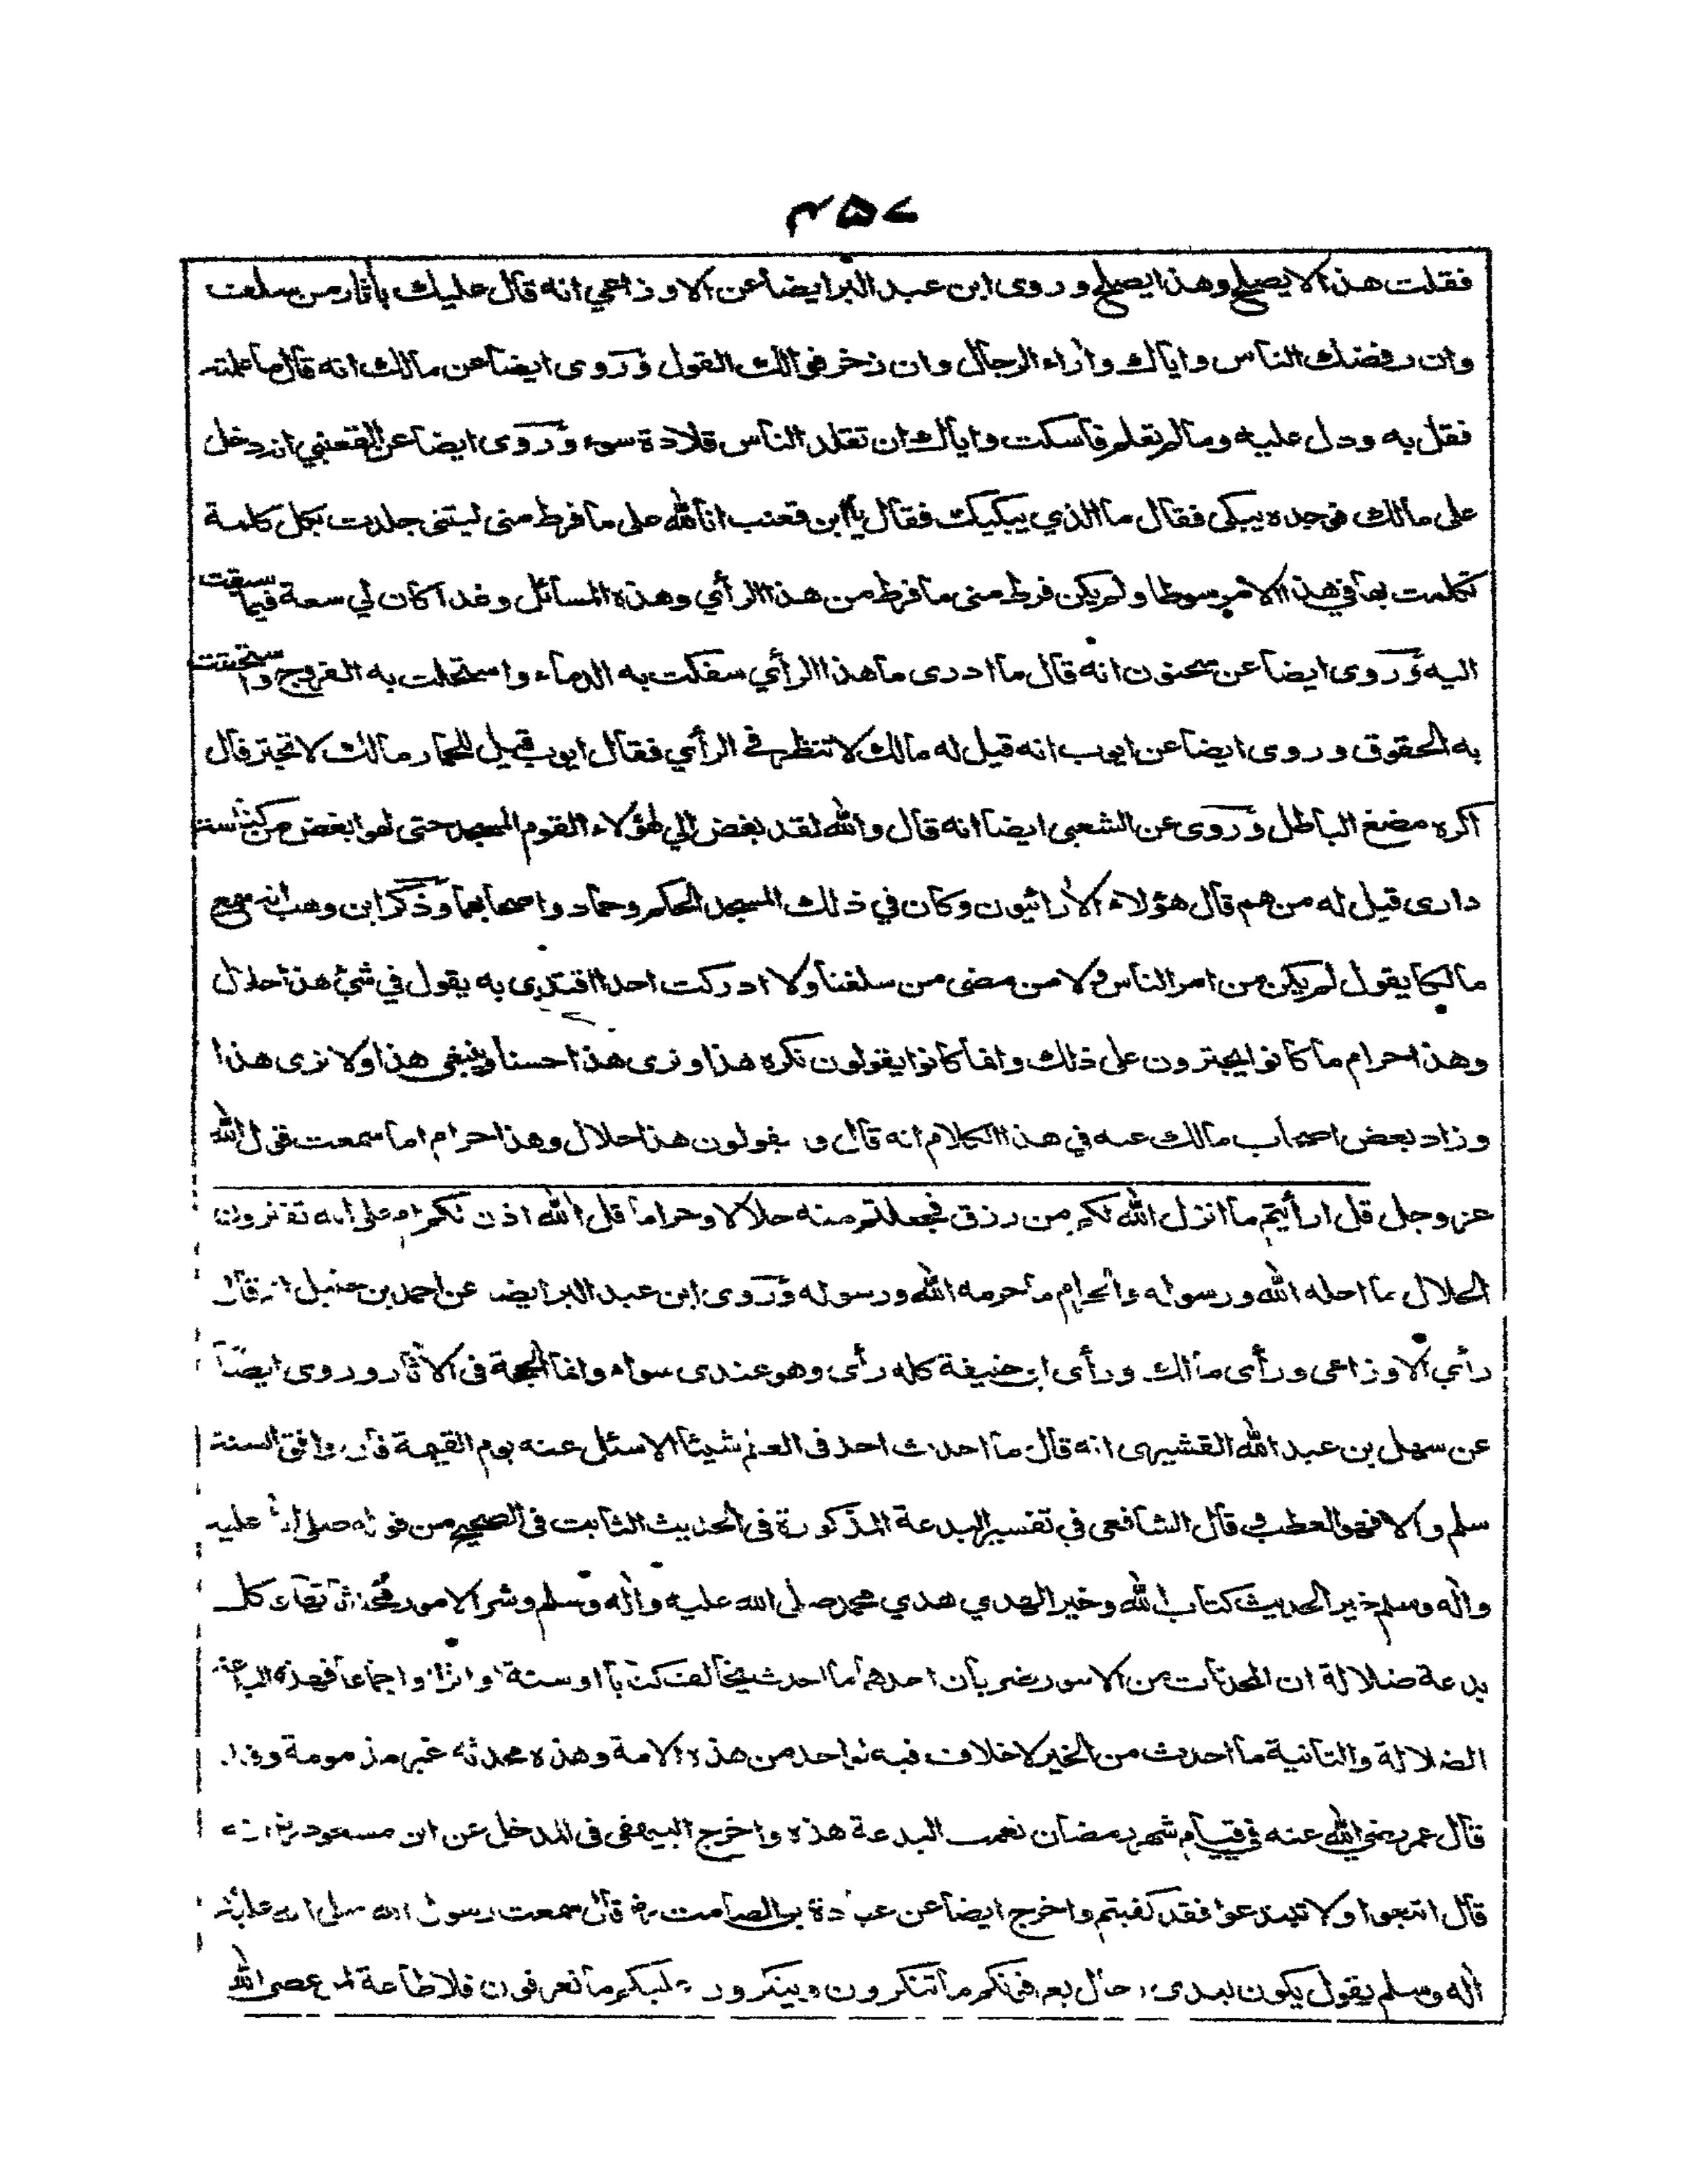 ۴۵۷
فقلت هذا لا يصلح وهذا يصلح وروى ابن عبد البر ايضا عن الاوزاعي انه قال عليك بآثار من سلف
وان رفضك الناس واياك وآراء الرجال وان زخرفوا لك القول وروى ايضا عن مالك انه قال ما علمته
فقل به ودل عليه وما لم تعلم فاسكت واياك ان تقلد الناس قلادة سوء وروى ايضا عن القعنبي انه دخل
على مالك فوجده يبكى فقال ما الذي يبكيك فقال يا ابن قعنب انا لله على ما فرط منى ليتنى جلدت بكل كلمة
تكلمت بها في هذا الامر سوطا ولم يكن فرط منى ما فرط من هذا الرأي وهذه المسائل وقد كان لي سعة فيما سبقت
اليه وروى ايضا عن سحنون انه قال ما ادرى ما هذا الرأي سفكت به الدماء واستحلت به الفروج واستحقت
به الحقوق وروى ايضا عن ايوب انه قيل له مالك لا تنظر في الرأي فقال ايوب قيل للحمار مالك لا تجتر قال
اكره مضغ الباطل وروى عن الشعبى ايضا انه قال والله لقد بغض الي هؤلاء القوم المسجد حتى لهو ابغض من كناسة
دارى قيل له من هم قال هؤلاء الأرائيون وكان في ذلك المسجد الحكم وحماد واصحابهما وذكر ابن وهب انه سمع
مالكا يقول لم يكن من امر الناس ولا من مضى من سلفنا ولا ادركت احدا اقتدى به يقول في شئ هذا حلال
وهذا حرام ما كانوا يجترون على ذلك وانما كانوا يقولون نكره هذا ونرى هذا حسنا وينبغى هذا ولا نرى هذا
وزاد بعض اصحاب مالك عنه في هذا الكلام انه قال و يقولون هذا حلال وهذا حرام اما سمعت قول الله
عز وجل قل ارأيتم ما انزل الله لكم من رزق فجعلتم منه حلالا وحراما قل الله اذن لكم ام على الله تفترون
الحلال ما احله الله ورسوله والحرام ما حرمه الله ورسوله وروى ابن عبد البر ايضا عن احمد بن حنبل انه قال
رأي الاوزاعى ورأى مالك ورأى ابى حنيفة كله رأى وهو عندى سواء وانما الحجة فى الآثار وروى ايضا
عن سهل بن عبد الله القشيرى انه قال ما احدث احد فى العلم شيئا الا سئل عنه يوم القيمة فان وافق السنة
سلم والا فهو العطب قال الشافعى في تفسير البدعة المذكورة فى الحديث الثابت فى الصحيح من قوله صلى الله عليه
وآله وسلم خير الحديث كتاب الله وخير الهدي هدي محمد صلى الله عليه وآله وسلم وشر الامور محدثاتها وكل
بدعة ضلالة ان المحدثات من الامور ضربان احدهما ما احدث يخالف كتابا او سنة او اثرا او اجماعا فهذه البدعة
الضلالة والثانية ما احدث من الخير لا خلاف فيه لواحد من هذه الامة وهذه محدثة غير مذمومة وقد
قال عمر رضي الله عنه في قيام شهر رمضان نعمت البدعة هذه واخرج البيهقى فى المدخل عن ابن مسعود
قال اتبعوا ولا تبتدعوا فقد كفيتم واخرج ايضا عن عبادة بن الصامت رض قال سمعت رسول الله صلى الله عليه
آله وسلم يقول يكون بعدى رجال يعرفونكم ما تنكرون وينكرون عليكم ما تعرفون فلا طاعة لمن عصى الله